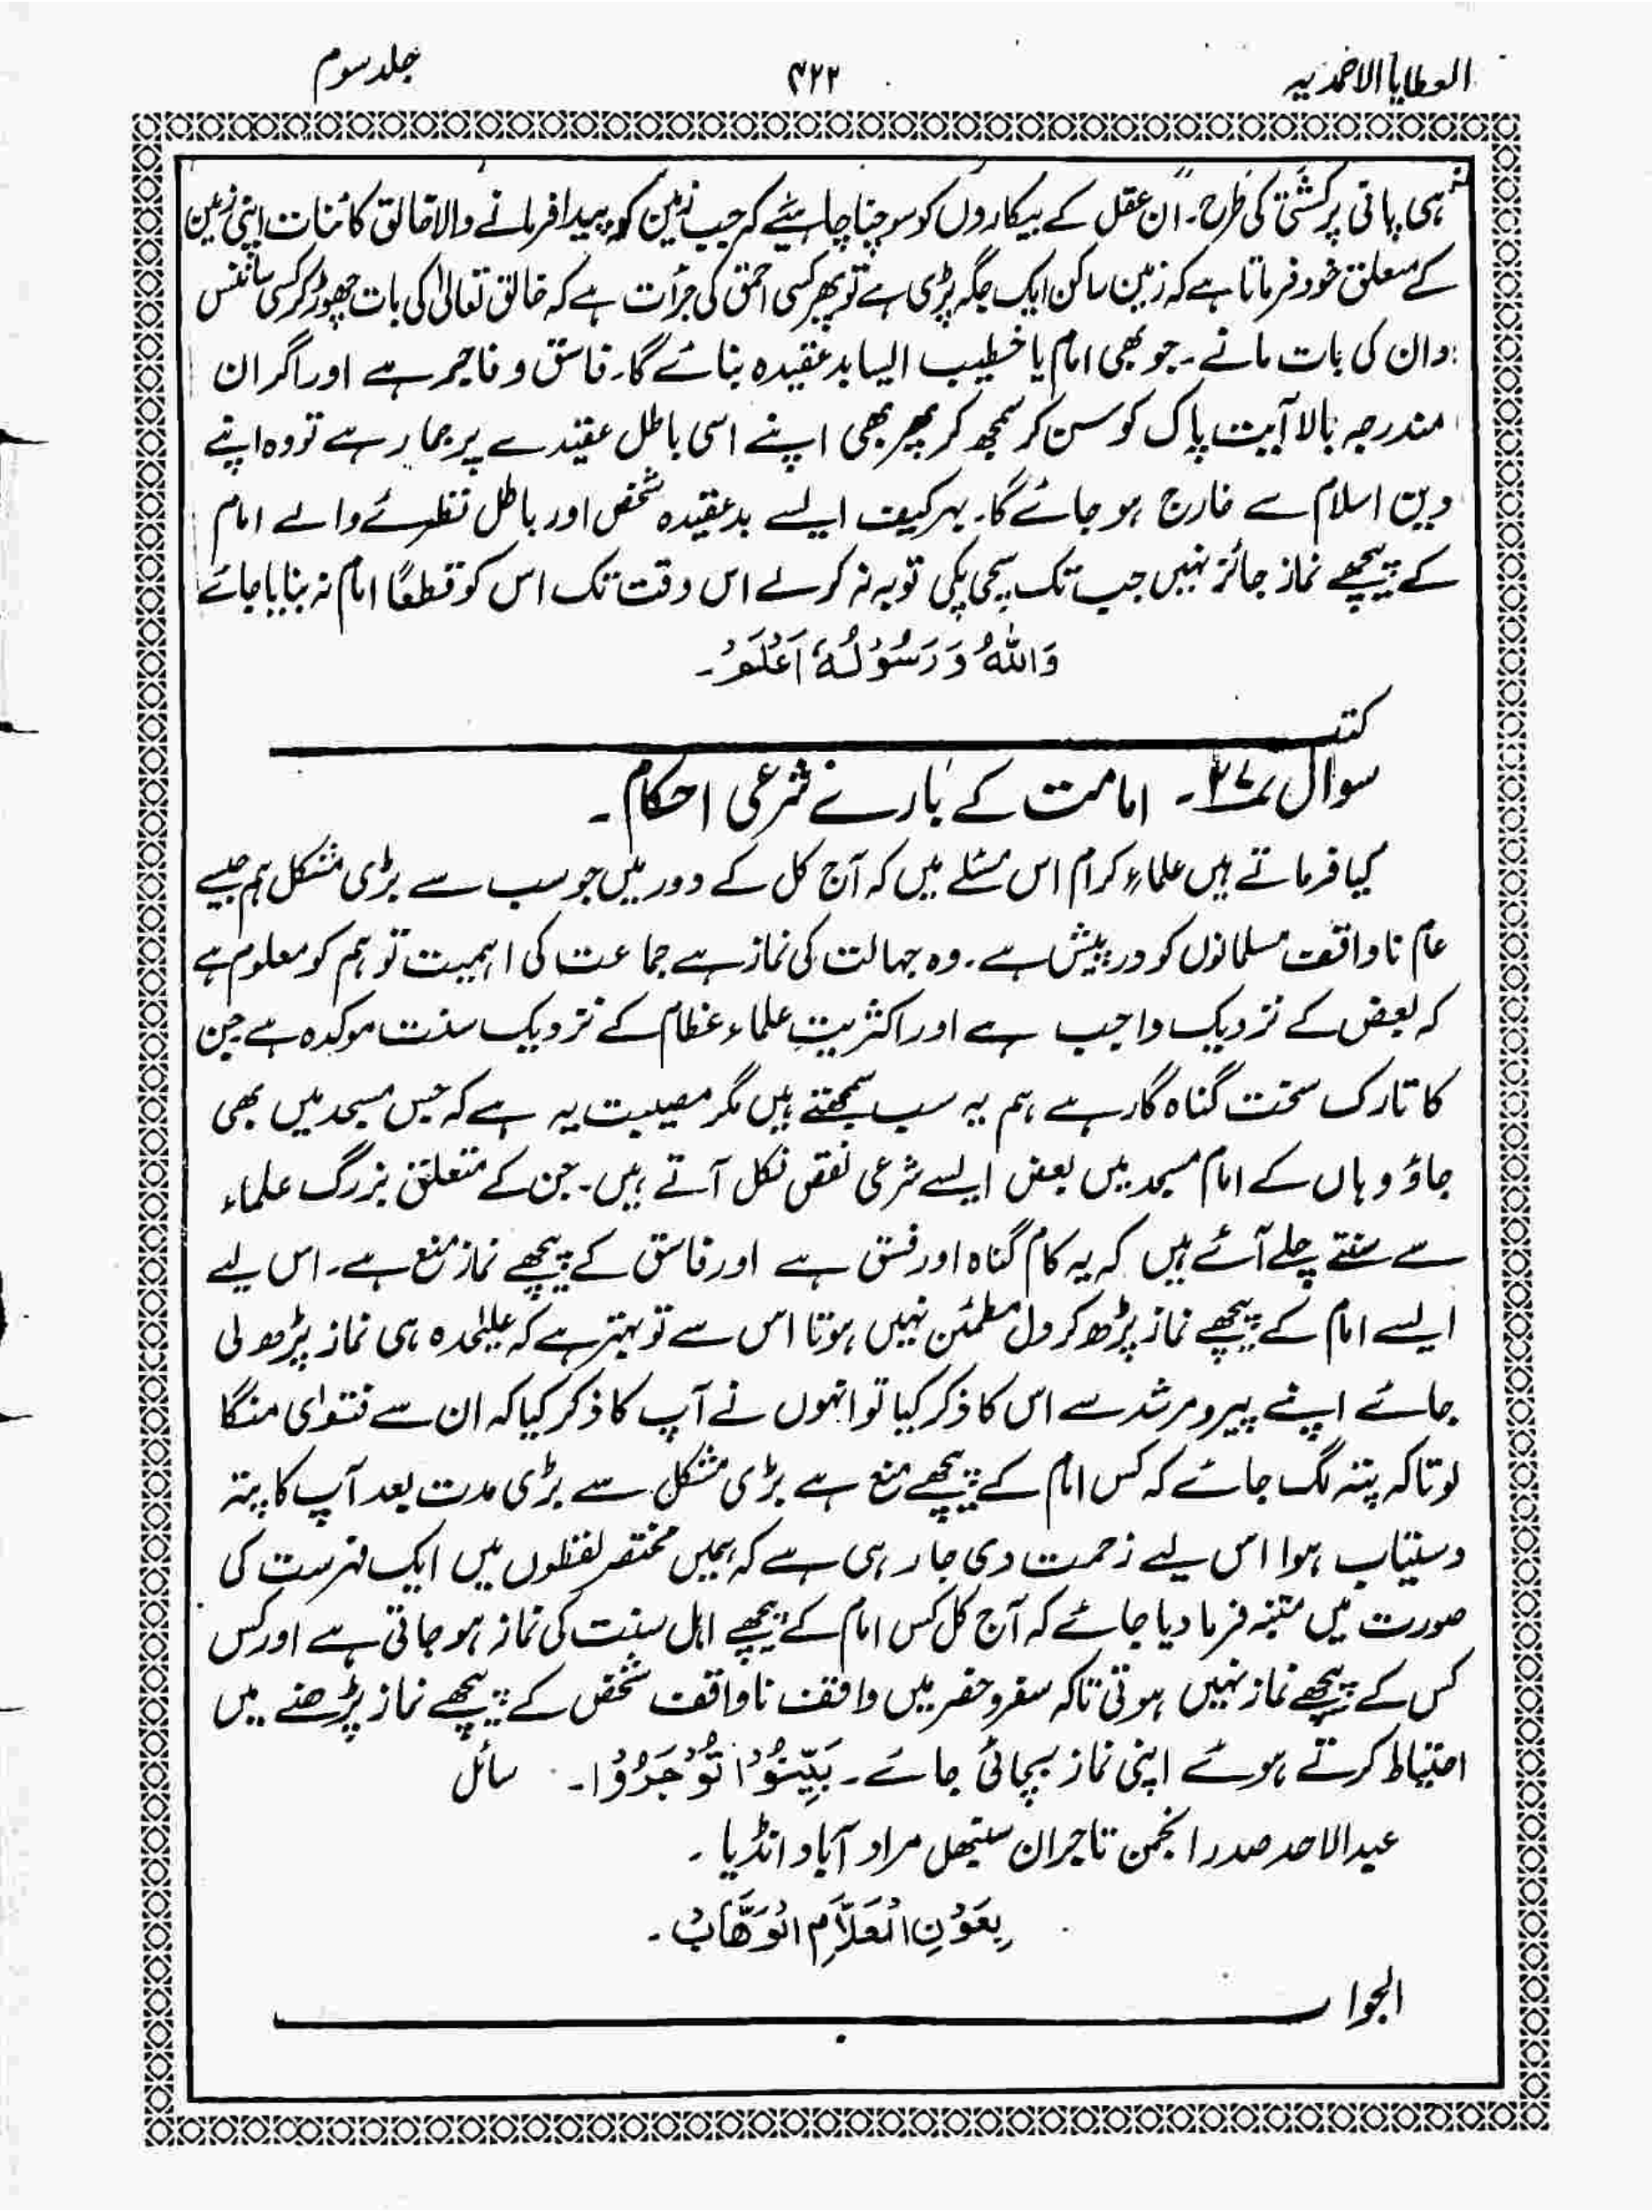 العطایا الاحمدیہ ۴۲۲ جلد سوم
ہی پانی پر کشتی کی طرح۔ ان عقل کے بیکاروں کو سوچنا چاہیئے کہ جب زمین کو پیدا فرمانے والا خالق کائنات اپنی زمین
کے متعلق خود فرماتا ہے کہ زمین ساکن ایک جگہ پڑی ہے تو پھر کسی احمق کی جرأت ہے کہ خالق تعالیٰ کی بات چھوڑ کر کسی سائنس
دان کی بات مانے۔ جو بھی امام یا خطیب ایسا بدعقیدہ بنائے گا۔ فاسق و فاجر ہے اور اگر ان
مندرجہ بالا آیت پاک کو سن کر سمجھ کر پھر بھی اپنے اسی باطل عقیدے پر جما رہے تو وہ اپنے
دین اسلام سے خارج ہو جائے گا۔ بہر کیف ایسے بدعقیدہ شخص اور باطل نظریئے والے امام
کے پیچھے نماز جائز نہیں جب تک سچی پکی توبہ نہ کرلے اس وقت تک اس کو قطعًا امام نہ بنایا جائے
وَاللّٰہُ وَرَسُوْلُہٗ اَعْلَمُ۔
کتبـــــہ
سوال نمبر ۲۷۔ امامت کے بارے شرعی احکام۔
کیا فرماتے ہیں علماءِ کرام اس مسئلے میں کہ آج کل کے دور میں جو سب سے بڑی مشکل ہم جیسے
عام ناواقف مسلمانوں کو درپیش ہے۔ وہ جہالت کی نماز ہے جماعت کی اہمیت تو ہم کو معلوم ہے
کہ بعض کے نزدیک واجب ہے اور اکثریتِ علماء عظام کے نزدیک سنت موکدہ ہے جن
کا تارک سخت گناہ گار ہے ہم یہ سب سمجھتے ہیں مگر مصیبت یہ ہے کہ جس مسجد میں بھی
جاؤ وہاں کے امام مسجد میں بعض ایسے شرعی نقص نکل آتے ہیں۔ جن کے متعلق بزرگ علماء
سے سنتے چلے آئے ہیں کہ یہ کام گناہ اور فسق ہے اور فاسق کے پیچھے نماز منع ہے۔ اس لیے
ایسے امام کے پیچھے نماز پڑھ کر دل مطمئن نہیں ہوتا اس سے تو بہتر ہے کہ علیٰحدہ ہی نماز پڑھ لی
جائے اپنے پیر و مرشد سے اس کا ذکر کیا تو انہوں نے آپ کا ذکر کیا کہ ان سے فتوٰی منگا
لو تاکہ پتہ لگ جائے کہ کس امام کے پیچھے منع ہے بڑی مشکل سے بڑی مدت بعد آپ کا پتہ
دستیاب ہوا اس لیے زحمت دی جا رہی ہے کہ ہمیں مختصر لفظوں میں ایک فہرست کی
صورت میں متنبہ فرما دیا جائے کہ آج کل کس امام کے پیچھے اہل سنت کی نماز ہو جاتی ہے اور کس
کس کے پیچھے نماز نہیں ہوتی تاکہ سفر و حضر میں واقف ناواقف شخص کے پیچھے نماز پڑھنے میں
احتیاط کرتے ہوئے اپنی نماز بچائی جائے۔ بَیِّنُوْا تُوْجَرُوْا۔ سائل
عبدالاحد صدر انجمن تاجران سنبھل مراد آباد انڈیا۔
بِعَوْنِ الْعَلَّامِ الْوَھَّابُ۔
الجواب